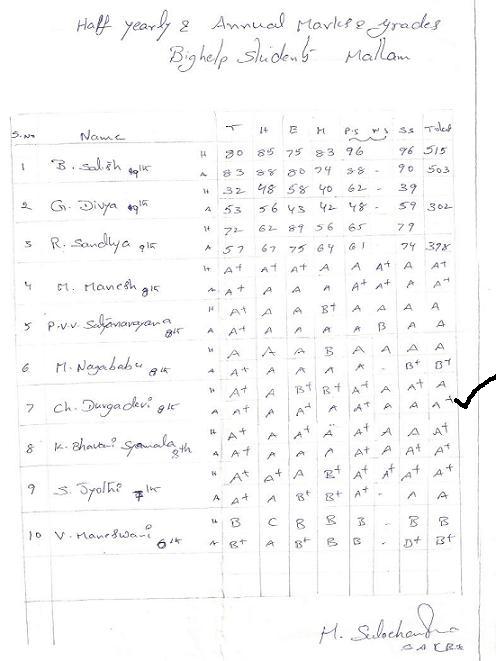 Half yearly & Annual Marks & grades
Bighelp Students Mallam
S.No Name T H E M P.S N.S SS Total
H 80 85 75 83 96 96 515
1 B. Satish 9th A 83 88 80 74 88 - 90 503
H 32 48 58 40 62 - 39
2 G. Divya 9th A 53 56 43 42 48 - 59 302
H 72 62 89 56 65 79
3 R. Sandhya 9th A 57 67 75 64 61 74 398
H A+ A+ A+ A A A+ A A+
4 M. Manesh 8th A A+ A A A A+ A+ A+ A+
H A+ A A B+ A A A A
5 P.V.V. Satyanarayana 8th A A+ A A A A B A A
H A A A B A A A A
6 M. Nagababu 8th A A+ A A A A - B+ B+
H A+ A B+ B+ A A A+ A
7 Ch. Durgadevi 8th A A+ A A+ A A+ A A A+
H A+ A+ A A A+ A A A+
8 K. Bhavani Syamala 8th A A+ A A A A+ A A+ A+
H A+ A+ A B+ A+ A A+ A+
9 S. Jyothi 7th A A+ A B+ B+ A+ - A A
H B C B B B - B B
10 V. Maneswari 6th A B+ A B+ B B - B+ B+
M. Sulochandra